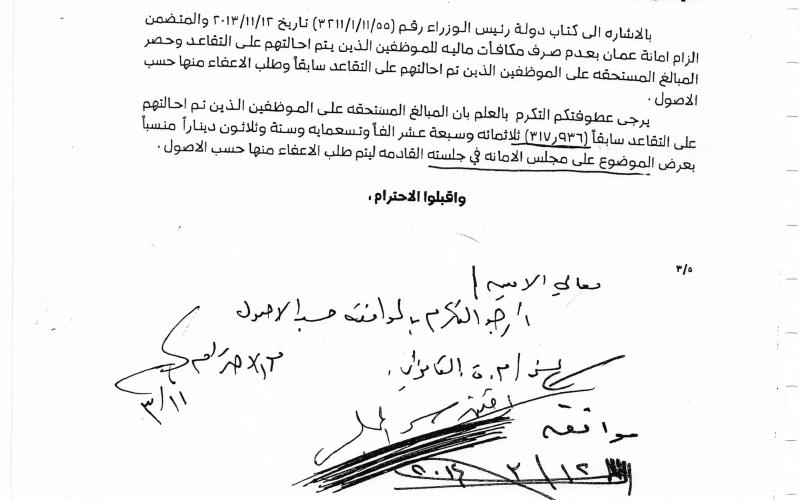 بالاشاره الى كتاب دولة رئيس الوزراء رقم (٣٢١١/١/١١/٥٥) تاريخ ٢٠١٣/١١/١٢ والمتضمن
الزام امانة عمان بعدم صرف مكافآت ماليه للموظفين الذين يتم احالتهم على التقاعد وحصر
المبالغ المستحقه على الموظفين الذين تم احالتهم على التقاعد سابقاً وطلب الاعفاء منها حسب
الاصول .
يرجى عطوفتكم التكرم بالعلم بان المبالغ المستحقه على الموظفين الذين تم احالتهم
على التقاعد سابقاً (٣١٧٫٩٣٦) ثلاثمائه وسبعة عشر الفاً وتسعمايه وستة وثلاثون ديناراً منسباً
بعرض الموضوع على مجلس الامانه في جلسته القادمه ليتم طلب الاعفاء منها حسب الاصول .
واقبلوا الاحترام ،
٣/٥
معالي الامين /
ارجو التكرم بالموافقة حسب الاصول
مع الاحترام
٣/١١
موافقه